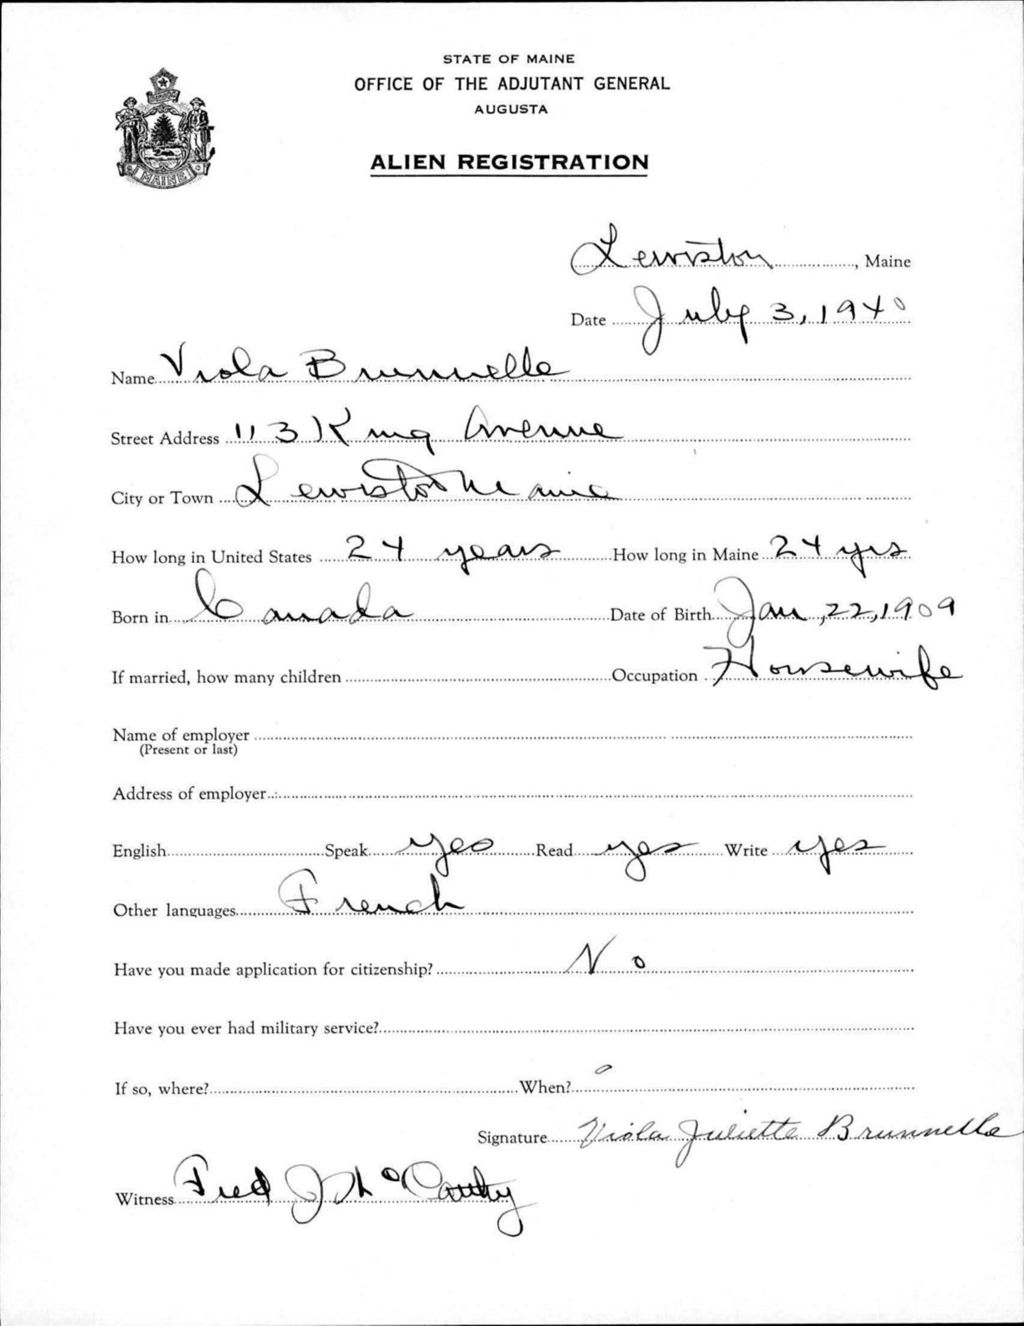 STATE OF MAINE
OFFICE OF THE ADJUTANT GENERAL
AUGUSTA
ALIEN REGISTRATION
MAINE
Lewiston, Maine
Date July 3, 1940
Name Viola Brunnelle
Street Address 113 King Avenue
City or Town Lewiston Maine
How long in United States 24 years How long in Maine 24 yrs
Born in Canada Date of Birth Jan, 22, 1909
If married, how many children Occupation Housewife
Name of employer
(Present or last)
Address of employer
English Speak yes Read yes Write yes
Other languages French
Have you made application for citizenship? No
Have you ever had military service?
If so, where? When?
Signature Viola Juliette Brunnelle
Witness Fred J McCarthy